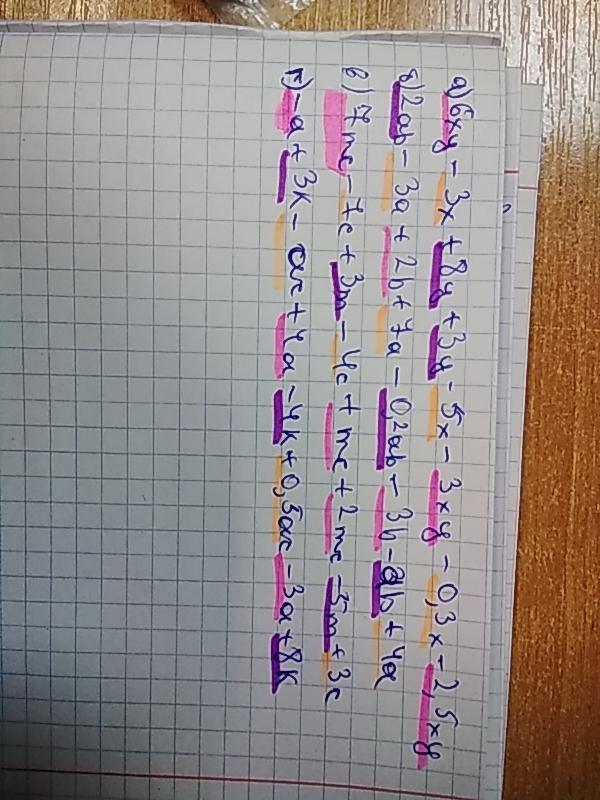 а) 6xy - 3x + 8y + 3y - 5x - 3xy - 0,3x - 2,5xy
б) 2ab - 3a + 2b + 7a - 0,2ab - 3b - ab + 4a
в) 7mc - 7c + 3m - 4c + mc + 2mc - 5m + 3c
г) -a + 3k - ac + 4a - 4k + 0,5ac - 3a + 8k